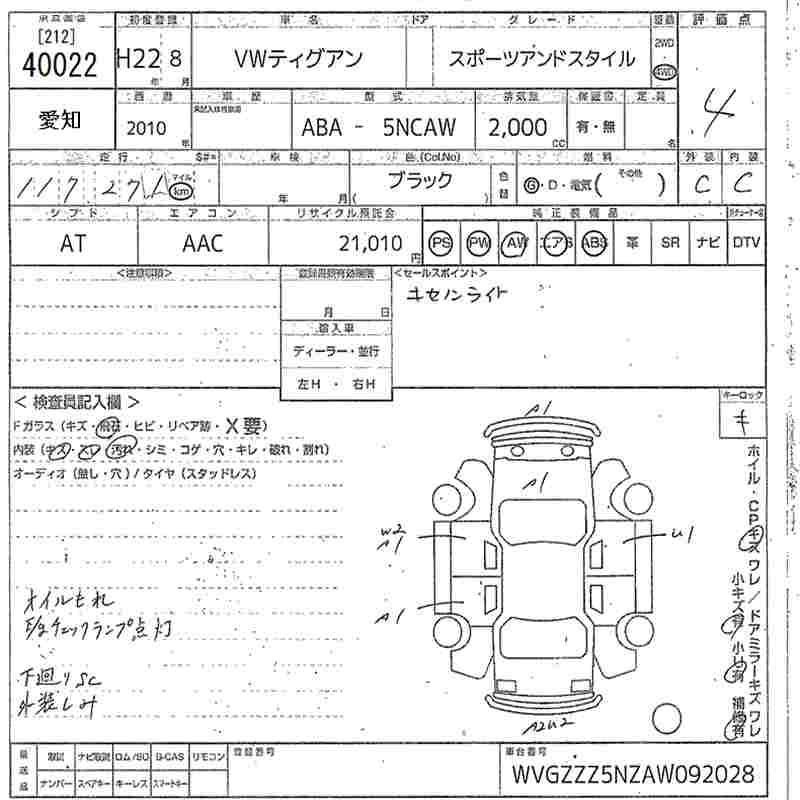 [212]
40022
初度登録 車名 ドア グレード 評価点
H22 8 VWティグアン スポーツアンドスタイル 2WD 4WD 4
年 月
愛知
西暦 車歴 型式 排気量 保証書 定員
2010 ABA - 5NCAW 2,000 有・無
年 CC 名
走行 車検 色(Col.No) 燃料 外装 内装
マイル km 年 月 ブラック 色替 G・D・電気( その他 ) C C
シフト エアコン リサイクル預託金 純正装備品
AT AAC 21,010 円 PS PW AW エアB ABS 革 SR ナビ DTV
<注意事項> <セールスポイント>
キセノンライト
月 日
輸入車
ディーラー・並行
左H ・ 右H
<検査員記入欄> キーロック
キ
Fガラス(キズ・飛石・ヒビ・リペア跡・X要)
内装(キズ・スレ・汚れ・シミ・コゲ・穴・キレ・破れ・割れ)
オーディオ(無し・穴)/タイヤ(スタッドレス)
A1
A1
W2
A1 U1
A1
A2U2
オイルもれ
E/gチェックランプ点灯
下廻りSC
外装しみ
ホイル・CPキズ ワレ/ドアミラーキズ ワレ
小キズ有 小U有 補修有
後送品 取説 ナビ取説 ロム/SD B-CAS リモコン 登録番号 車台番号
ナンバー スペアキー キーレス スマートキー WVGZZZ5NZAW092028